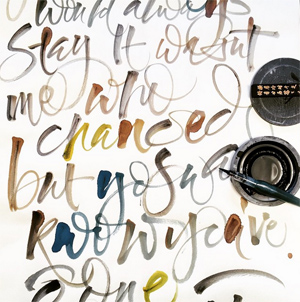 I would always
Stay It wasnt
me who
changed
but you
know
gone